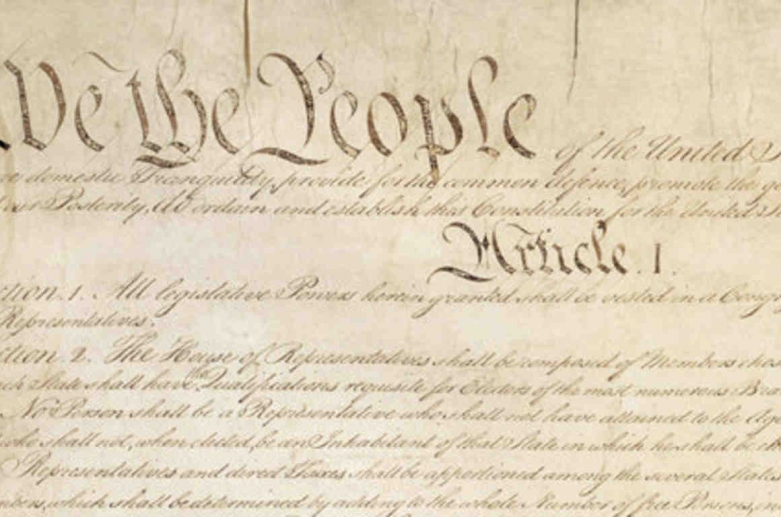 We the People of the United
domestic Tranquility, provide for the common defence, promote the
our Posterity, do ordain and establish this Constitution for the United
Article. I.
ction. 1. All legislative Powers herein granted shall be vested in a Cong
Representatives.
ction. 2. The House of Representatives shall be composed of Members chos
ch State shall have the Qualifications requisite for Electors of the most numerous Bra
No Person shall be a Representative who shall not have attained to the Age
who shall not, when elected, be an Inhabitant of that State in which he shall be ch
Representatives and direct Taxes shall be apportioned among the several States
mbers, which shall be determined by adding to the whole Number of free Persons, in